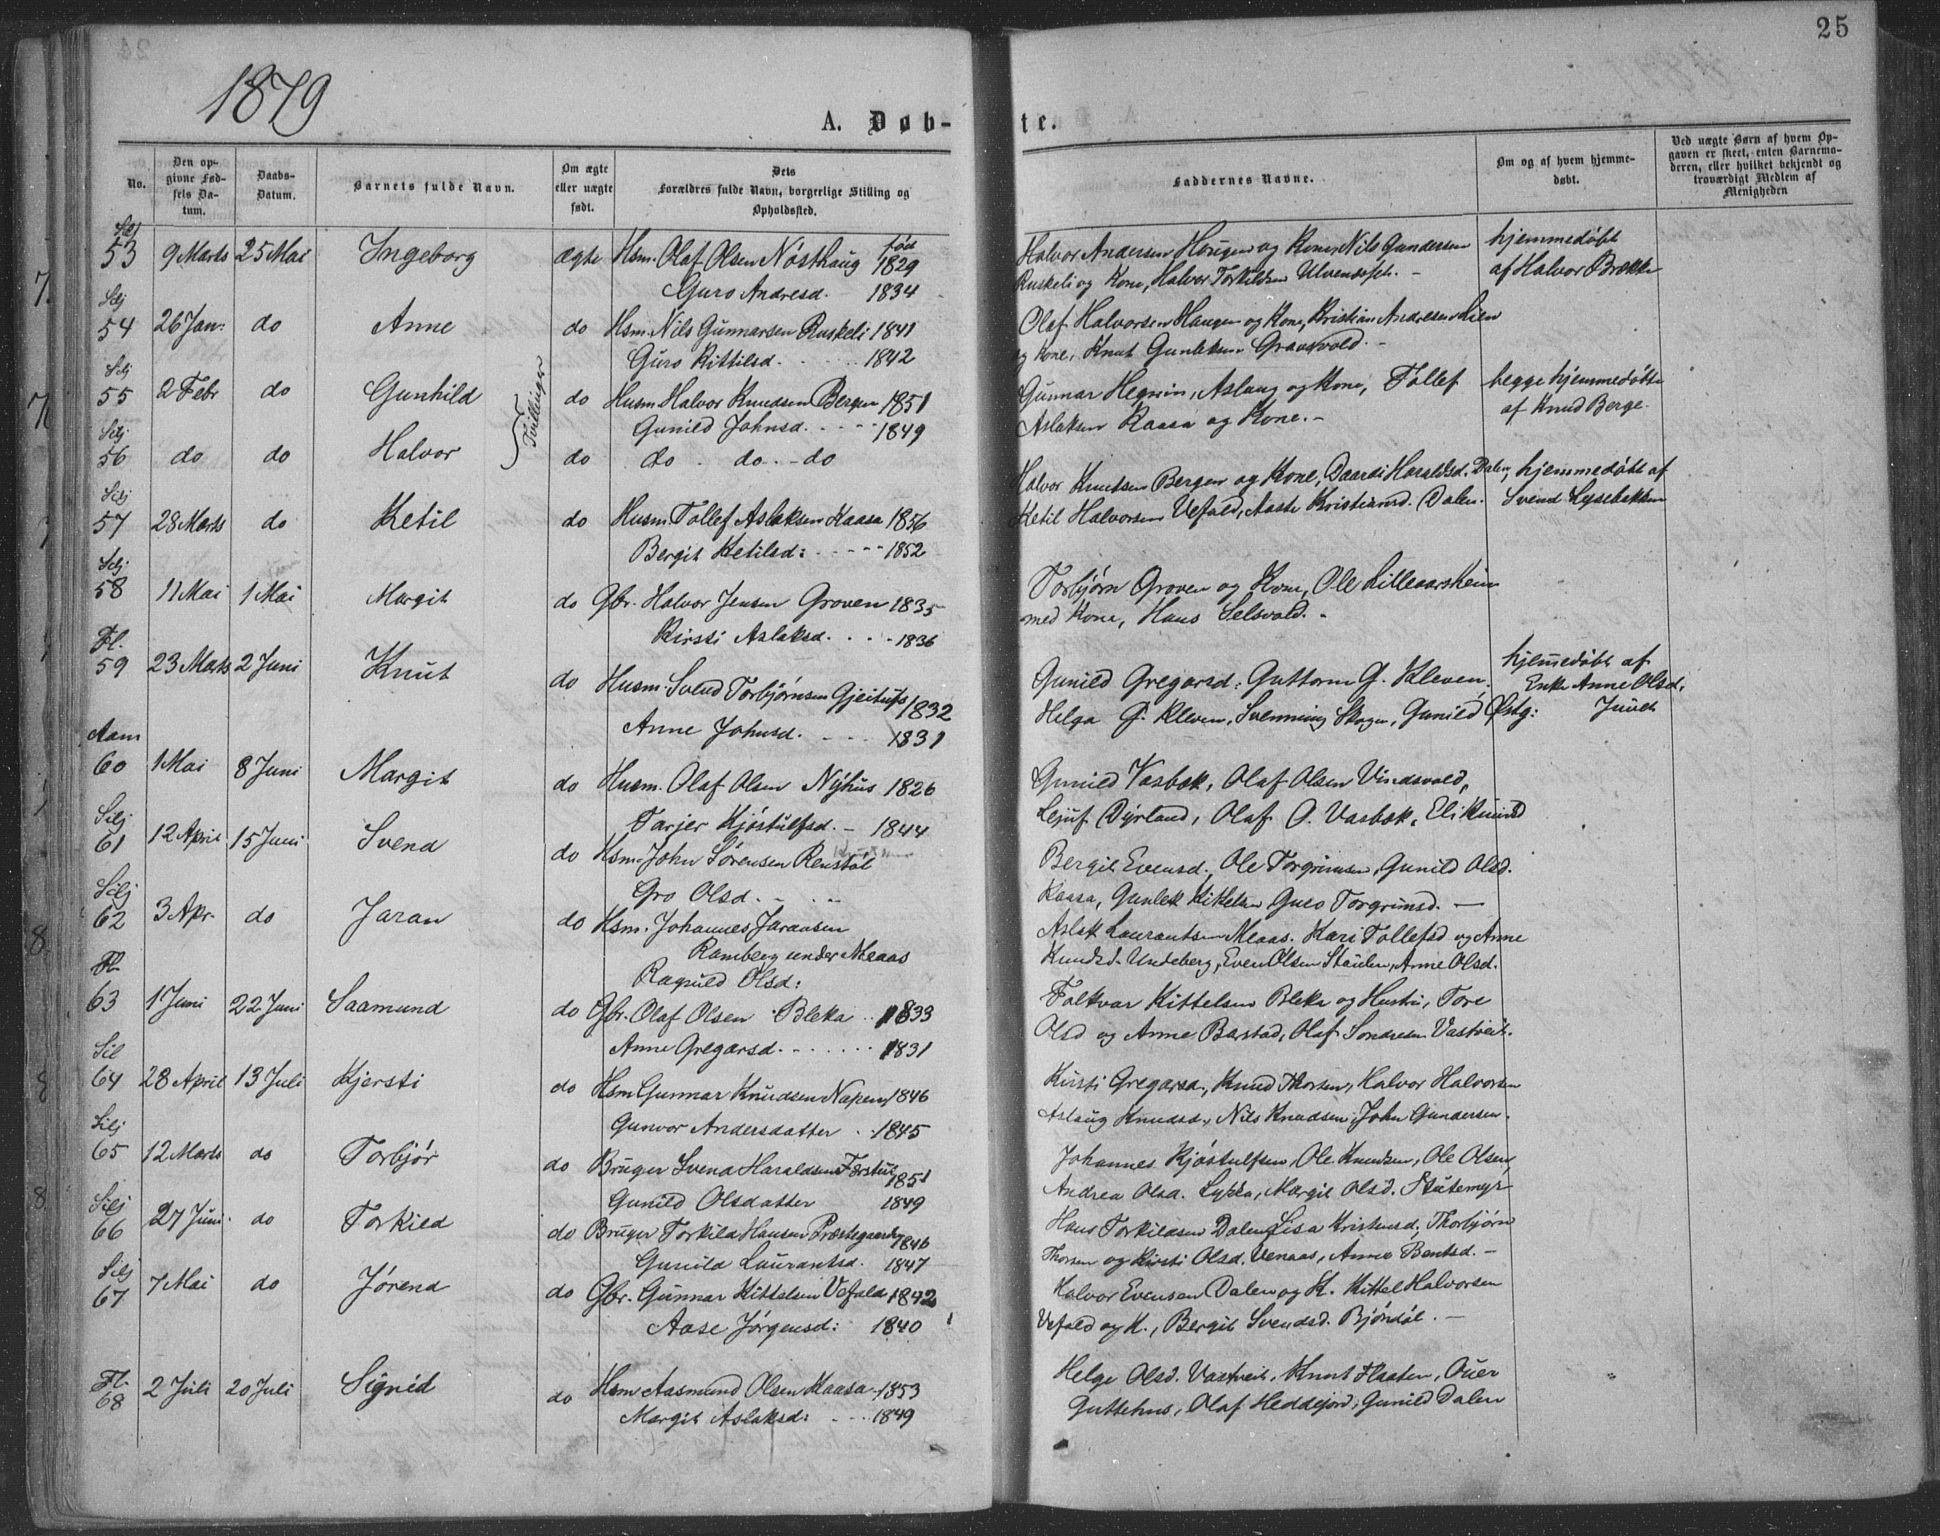 25
1879
A. Døb-
te.
No.
Den op-
givne Fød-
sels Da-
tum.
Daabs-
Datum.
Barnets fulde Navn.
Om ægte
eller uægte
født.
Dets
Forældres fulde Navn, borgerlige Stilling og
Opholdssted.
Faddernes Navne.
Om og af hvem hjemme-
døbt.
Ved uægte Børn af hvem Op-
gaven er skeet, enten Barnemo-
deren, eller hvilket bekjendt og
troværdigt Medlem af
Menigheden
Silj
53 9 Marts 25 Mai Ingeborg ægte Hsm. Olaf Olsen Nösthaug født 1829
Guro Andresd. 1834
Halvor Andersen Haugen og Kone, Nils Gundersen
Ruskeli og Kone, Halvor Torkildsen
hjemmedöbt
af Halvor Brække
Silj
54 26 Jan: do Anne do Hsm. Nils Gunnarsen Ruskeli 1841
Guro Kittilsd. 1842
Olaf Halvorsen Haugen og Kone, Kristian Andresen Lien
og Kone, Knut Gunleksen
Silj
55 2 Febr do Gunhild do Husm. Halvor Knudsen Bergen 1851
Gunild Johnsd. 1849
Tvillinger
Gunnar Aslaug og Kone, Tollef
Aslaksen Kaasa og Kone.
begge hjemmedöbte
af Knud Berge.
Silj
56 do do Halvor do do do do
Halvor Knutsen Bergen og Kone, Haraldsd. Dalen,
Silj
57 28 Marts do Ketil do Husm. Tollef Aslaksen Kaasa 1856
Bergit Ketilsd: 1852
Ketil Halvorsen Vefald, Aaste Kristiansd. Dalen.
hjemmedöbt af
Svend Lysebakken
Silj
58 11 Mai 1 Mai Margit do Gbr. Halvor Jensen Groven 1835
Kirsti Aslaksd. 1836
Torbjörn Groven og Kone, Ole Lilleaarsheim
med Kone, Hans Selsvold.
Fl.
59 23 Marts 2 Juni Knut do Husm. Svend Torbjörnsen 1832
Anne Johnsd. 1831
Gunild Gregarsd. Guttorm G. Kleven.
Helga G. Kleven, Svenning Skogen, Gunild
hjemmedöbt af
Enke Anne Olsd.
Aam
60 1 Mai 8 Juni Margit do Husm. Olaf Olsen Nyhus 1826
Tarjer Kjöstulfsd. 1844
Gunild Vasbæk, Olaf Olsen Vindsvold,
Dyrland, Olaf O. Vasbæk,
Silj
61 12 April 15 Juni Svend do Hsm. John Sörensen Renstöl
Gro Olsd.
Bergit Evensd. Ole Torgrimsen, Gunild Olsd.
Kaasa, Gunlek Kittelsen, Guro Torgrimsd.
Silj
62 3 Apr. do Jaran do Hsm. Johannes Jaransen
Ramberg under Meaas
Ragnild Olsd:
Aslak Laurantsen Meaas. Kari Tollefsd og Anne
Knudsd. Undeberg, Even Olsen Staulen, Anne Olsd.
Fl.
63 1 Juni 22 Juni Saamund do Gbr. Olaf Olsen Bleka 1833
Anne Gregarsd. 1831
Folkvar Kittelsen Bleka og Hustru, Tore
Olsd og Anne Barstad, Olaf Sondresen Vastveit.
Sil
64 28 April 13 Juli Kjersti do Hsm Gunnar Knudsen Napen 1846
Gunvor Andersdatter 1845
Kirsti Gregarsd., Knud Thorsen, Halvor Halvorsen
Aslaug Knudsd., Nils Knudsen, John Gundersen.
Silj
65 12 Marts do Torbjör do Bruger Svend Haraldsen 1851
Gunild Olsdatter 1849
Johannes Kjöstulfsen, Ole Knudsen, Ole Olsen,
Andrea Olsd. Margit Olsd. Stutemyr
Silj
66 27 Juni do Torkild do Bruger Torkild Hansen Præstegaarden 1846
Gunild Laurantsd. 1847
Hans Torkildsen Dalen, Lisa Kristensd., Thorbjörn
Thorsen og Kirsti Olsd. Venaas, Anne Bentsd.
Silj
67 7 Mai do Jörend do Gbr. Gunnar Kittelsen Vefald 1842
Aase Jörgensd: 1840
Halvor Evensen Dalen og K. Kittel Halvorsen
Vefald og K., Bergit Svendsd. Bjöndöl.
Fl.
68 2 Juli 20 Juli Signid do Hsm Aasmund Olsen Kaasa 1853
Margit Aslaksd: 1849
Helge Olsd. Vastveit, Knut Flaaten,
Guttehus, Olaf Heddejord, Gunild Dalen